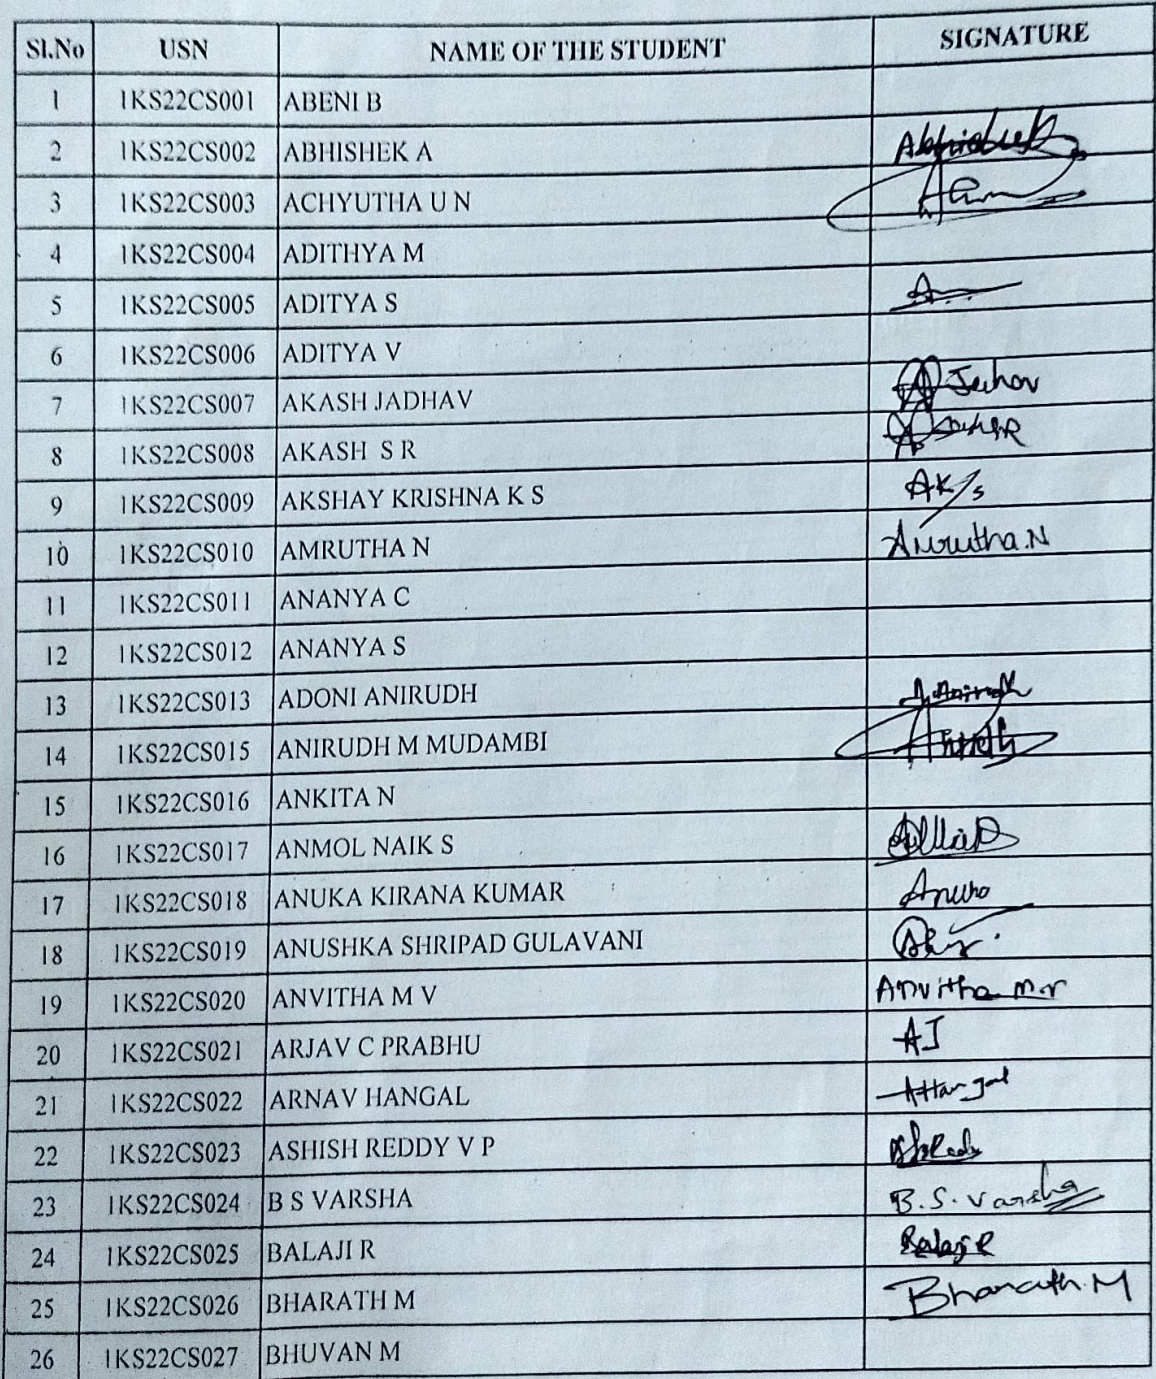 Sl.No USN NAME OF THE STUDENT SIGNATURE
1 1KS22CS001 ABENI B
2 1KS22CS002 ABHISHEK A Abhishek
3 1KS22CS003 ACHYUTHA U N
4 1KS22CS004 ADITHYA M
5 1KS22CS005 ADITYA S
6 1KS22CS006 ADITYA V
7 1KS22CS007 AKASH JADHAV
8 1KS22CS008 AKASH S R
9 1KS22CS009 AKSHAY KRISHNA K S
10 1KS22CS010 AMRUTHA N Amrutha.N
11 1KS22CS011 ANANYA C
12 1KS22CS012 ANANYA S
13 1KS22CS013 ADONI ANIRUDH A Anirudh
14 1KS22CS015 ANIRUDH M MUDAMBI
15 1KS22CS016 ANKITA N
16 1KS22CS017 ANMOL NAIK S
17 1KS22CS018 ANUKA KIRANA KUMAR
18 1KS22CS019 ANUSHKA SHRIPAD GULAVANI
19 1KS22CS020 ANVITHA M V Anvitha m.v
20 1KS22CS021 ARJAV C PRABHU AJ
21 1KS22CS022 ARNAV HANGAL AHangal
22 1KS22CS023 ASHISH REDDY V P
23 1KS22CS024 B S VARSHA B.S. Varsha
24 1KS22CS025 BALAJI R Balaji R
25 1KS22CS026 BHARATH M Bharath.M
26 1KS22CS027 BHUVAN M